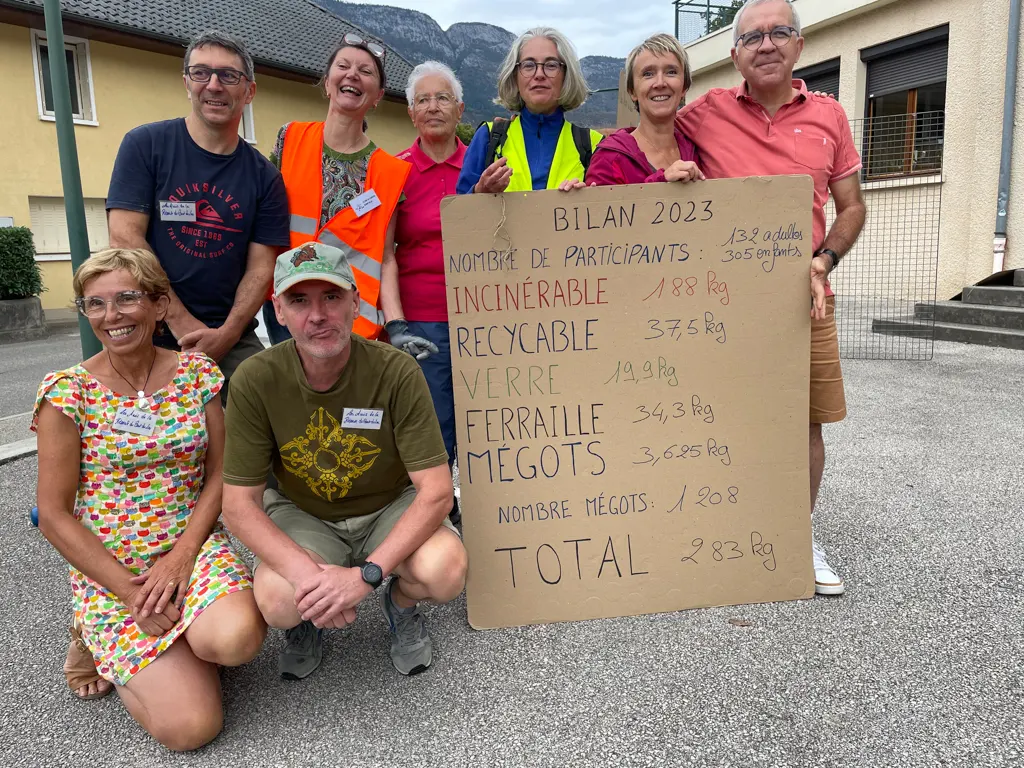 BILAN 2023
NOMBRE DE PARTICIPANTS : 132 adultes
305 enfants
INCINÉRABLE 188 kg
RECYCABLE 37,5 kg
VERRE 19,9 kg
FERRAILLE 34,3 kg
MÉGOTS 3,625 kg
NOMBRE MÉGOTS: 1 208
TOTAL 283 kg
QUIKSILVER
SINCE 1969
EST
THE ORIGINAL